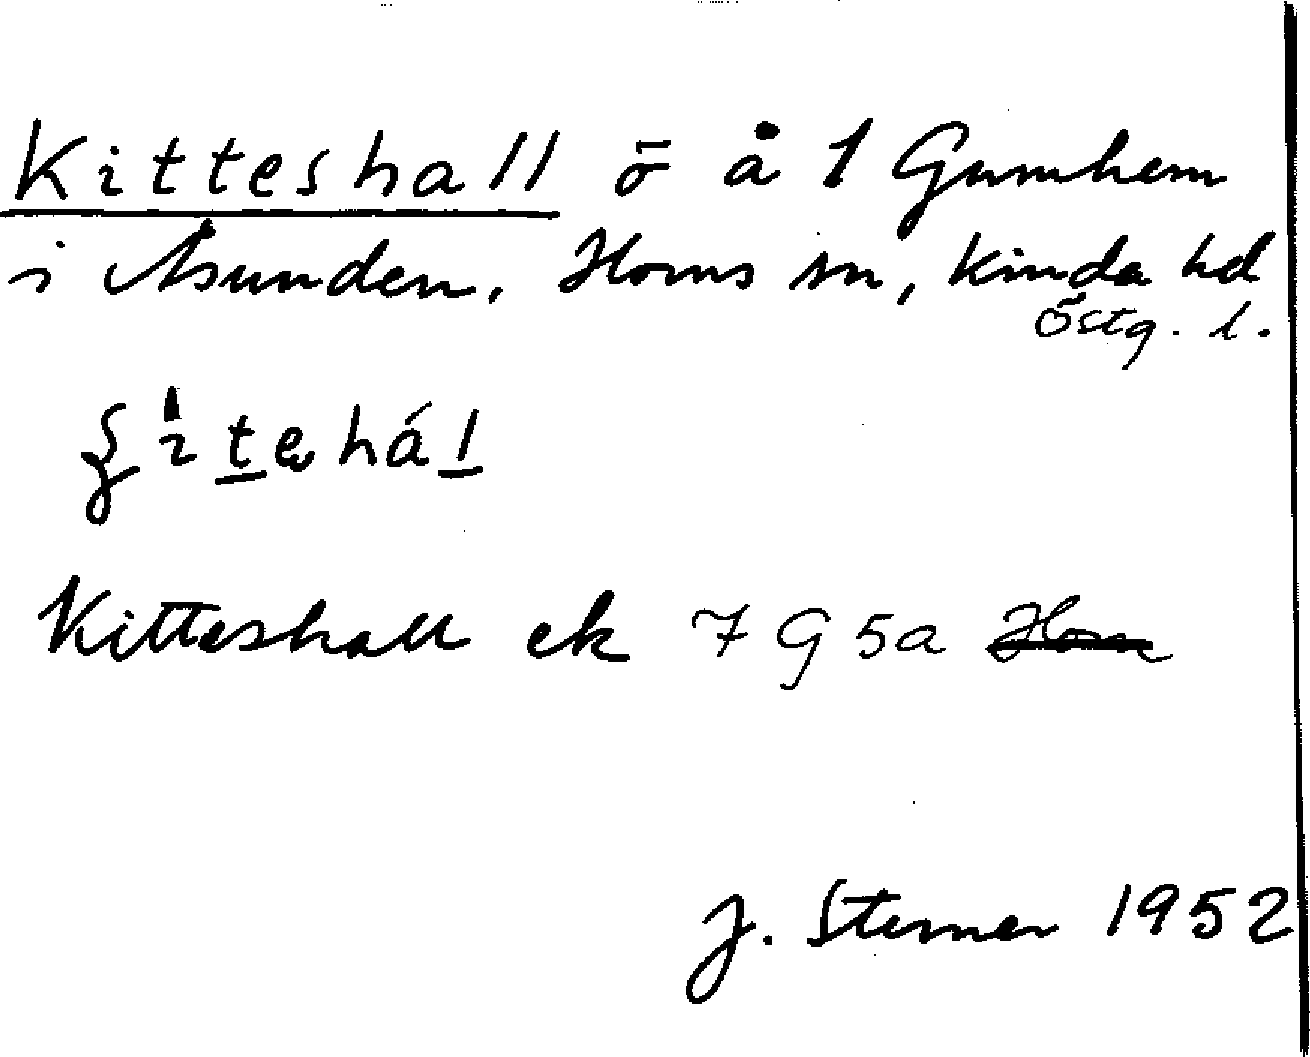 Kitteshall ö å 1 Gumhem
i Åsunden. Horns sn, Kinda hd
Östg. l.
Kitteshall ek 7 G 5a Horn
J. Sterner 1952